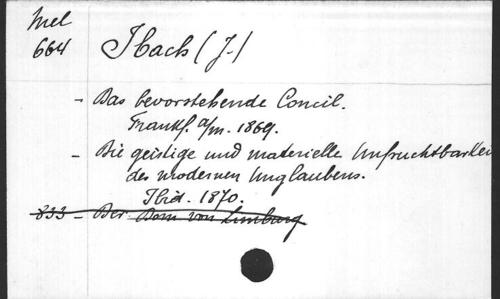 Mel
664 Ibach (J.)
- Das bevorstehende Concil.
Frankf. a/m. 1869.
- Die geistige und materielle Unfruchtbarkei
des modernen Unglaubens.
Ibid. 1870.
833 - Der Dom von Limburg